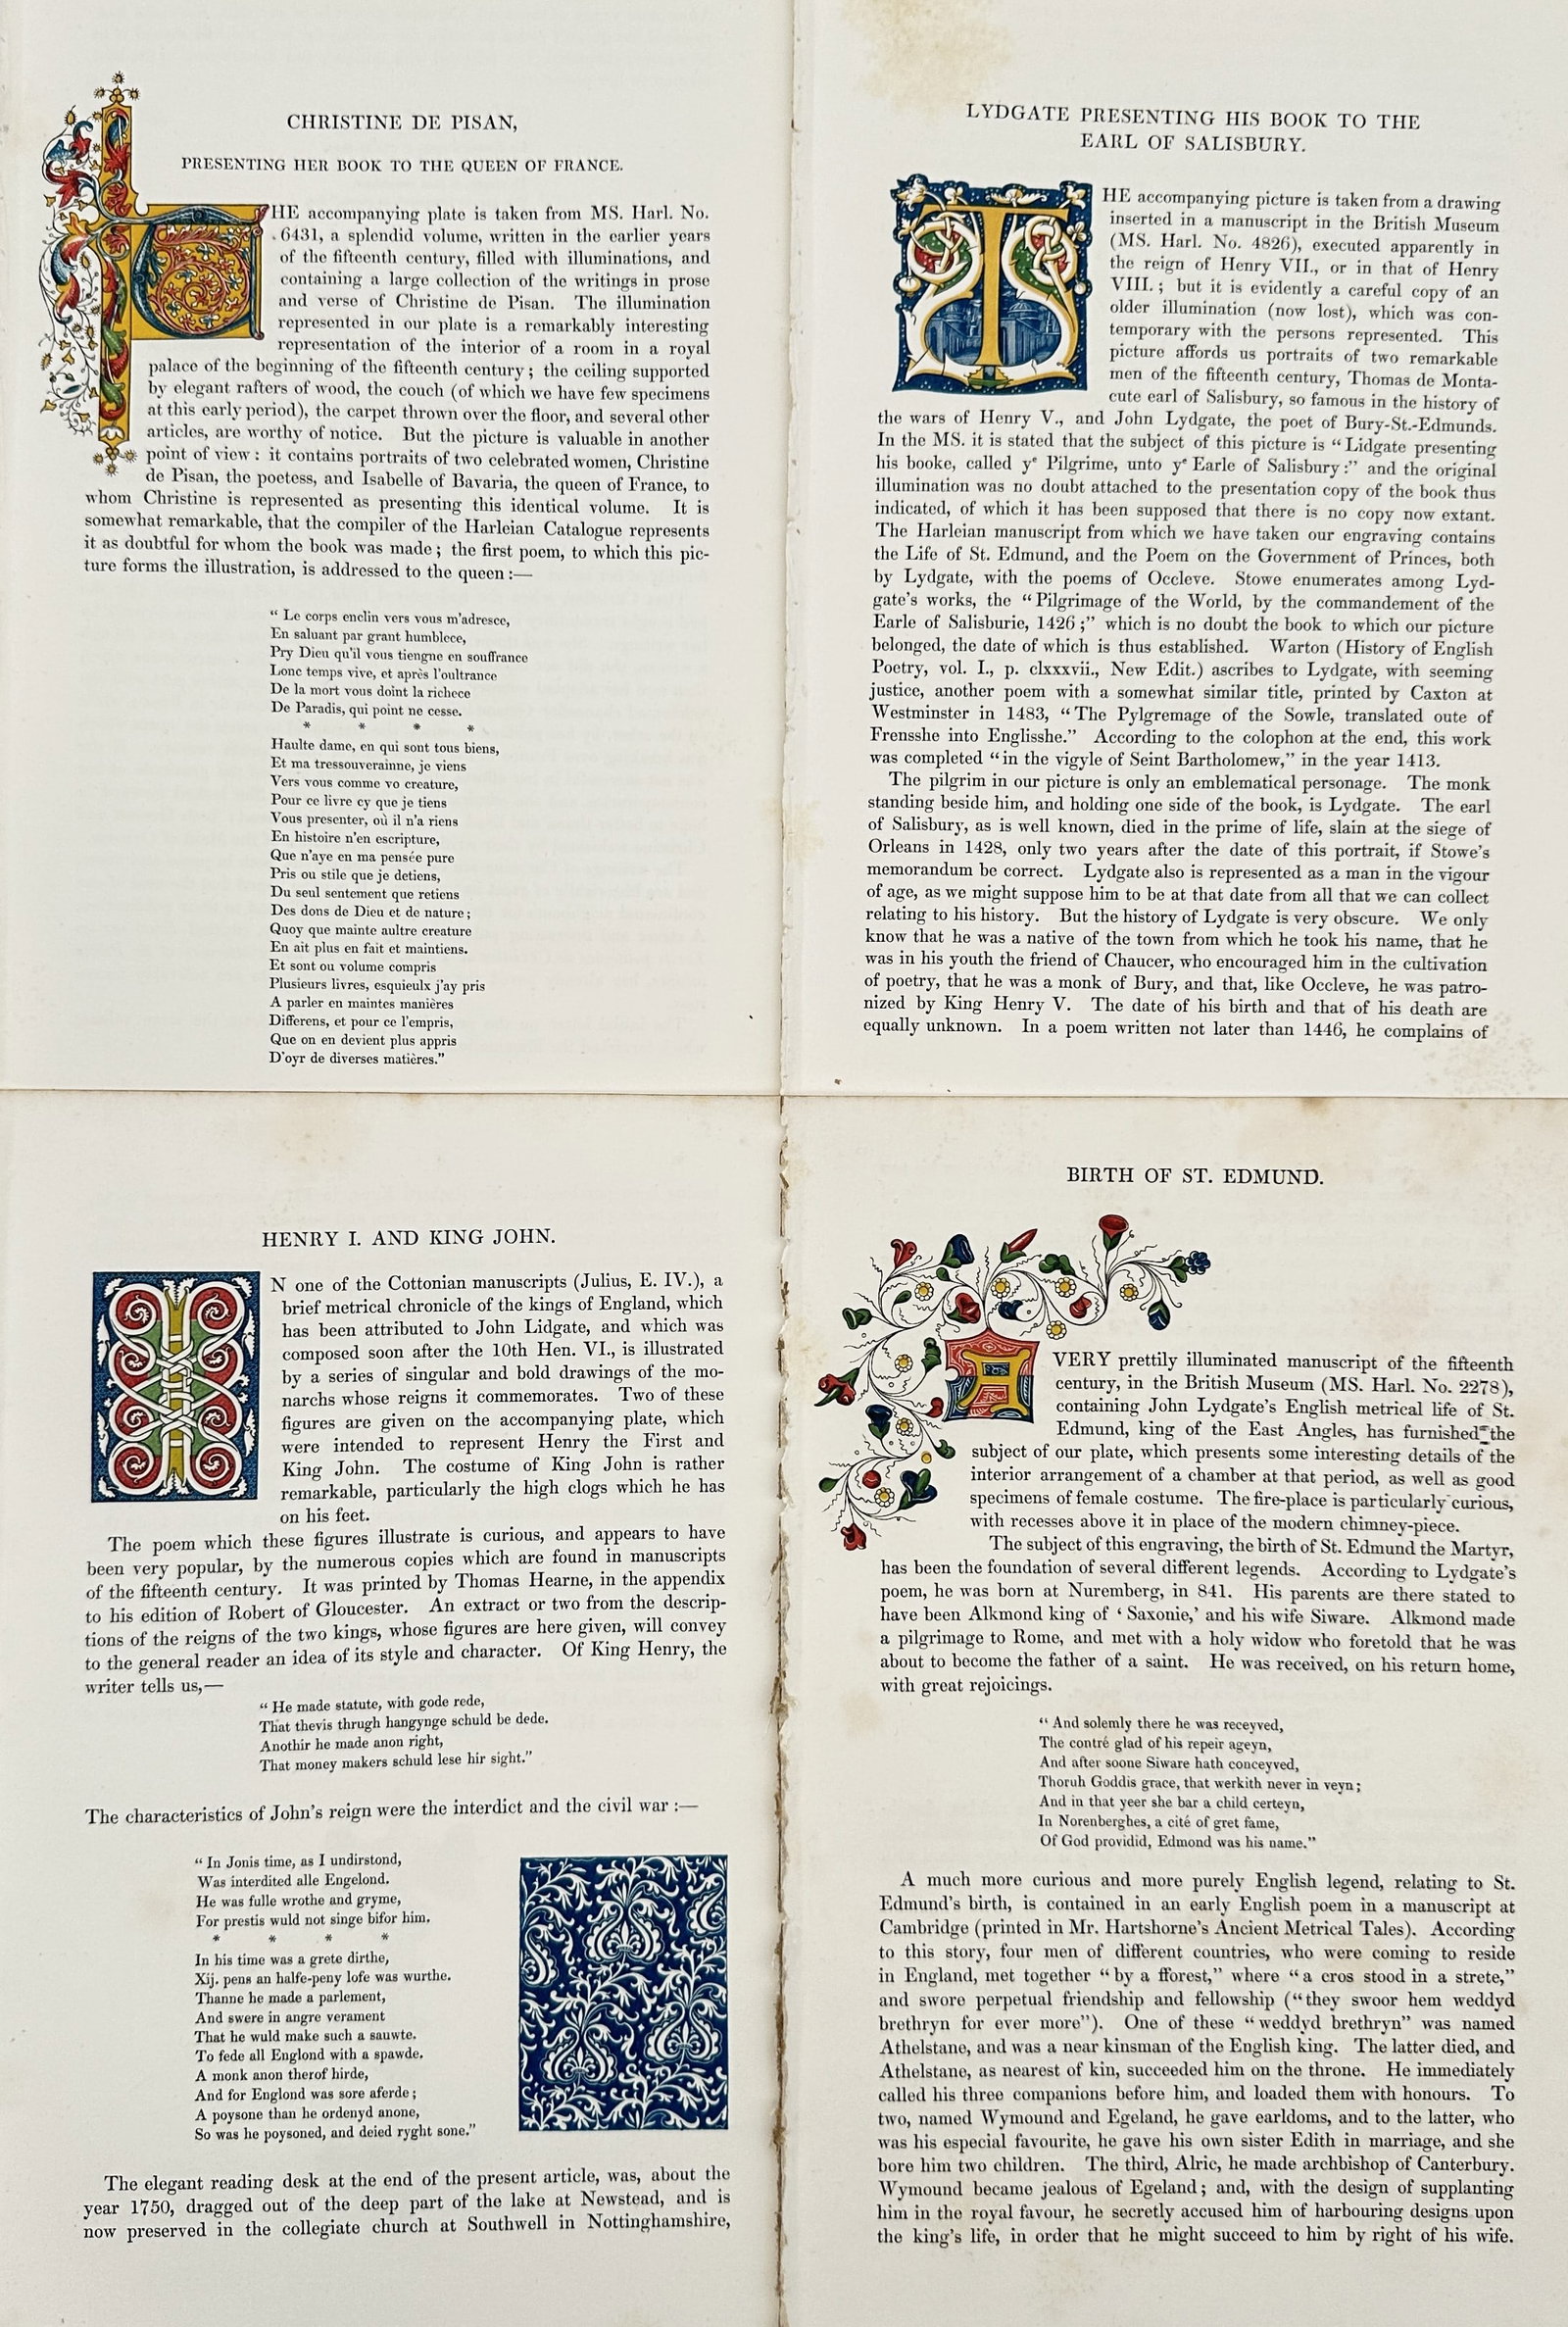 CHRISTINE DE PISAN,
PRESENTING HER BOOK TO THE QUEEN OF FRANCE.
THE accompanying plate is taken from MS. Harl. No.
6431, a splendid volume, written in the earlier years
of the fifteenth century, filled with illuminations, and
containing a large collection of the writings in prose
and verse of Christine de Pisan. The illumination
represented in our plate is a remarkably interesting
representation of the interior of a room in a royal
palace of the beginning of the fifteenth century; the ceiling supported
by elegant rafters of wood, the couch (of which we have few specimens
at this early period), the carpet thrown over the floor, and several other
articles, are worthy of notice. But the picture is valuable in another
point of view: it contains portraits of two celebrated women, Christine
de Pisan, the poetess, and Isabelle of Bavaria, the queen of France, to
whom Christine is represented as presenting this identical volume. It is
somewhat remarkable, that the compiler of the Harleian Catalogue represents
it as doubtful for whom the book was made; the first poem, to which this pic-
ture forms the illustration, is addressed to the queen:—
“ Le corps enclin vers vous m'adresce,
En saluant par grant humblece,
Pry Dieu qu'il vous tiengne en souffrance
Lonc temps vive, et après l'oultrance
De la mort vous doint la richece
De Paradis, qui point ne cesse.
* * * *
Haulte dame, en qui sont tous biens,
Et ma tressouverainne, je viens
Vers vous comme vo creature,
Pour ce livre cy que je tiens
Vous presenter, où il n'a riens
En histoire n'en escripture,
Que n'aye en ma pensée pure
Pris ou stile que je detiens,
Du seul sentement que retiens
Des dons de Dieu et de nature;
Quoy que mainte aultre creature
En ait plus en fait et maintiens.
Et sont ou volume compris
Plusieurs livres, esquieulx j'ay pris
A parler en maintes manières
Differens, et pour ce l'empris,
Que on en devient plus appris
D'oyr de diverses matières.”
LYDGATE PRESENTING HIS BOOK TO THE
EARL OF SALISBURY.
THE accompanying picture is taken from a drawing
inserted in a manuscript in the British Museum
(MS. Harl. No. 4826), executed apparently in
the reign of Henry VII., or in that of Henry
VIII.; but it is evidently a careful copy of an
older illumination (now lost), which was con-
temporary with the persons represented. This
picture affords us portraits of two remarkable
men of the fifteenth century, Thomas de Monta-
cute earl of Salisbury, so famous in the history of
the wars of Henry V., and John Lydgate, the poet of Bury-St.-Edmunds.
In the MS. it is stated that the subject of this picture is “ Lidgate presenting
his booke, called yᵉ Pilgrime, unto yᵉ Earle of Salisbury:” and the original
illumination was no doubt attached to the presentation copy of the book thus
indicated, of which it has been supposed that there is no copy now extant.
The Harleian manuscript from which we have taken our engraving contains
the Life of St. Edmund, and the Poem on the Government of Princes, both
by Lydgate, with the poems of Occleve. Stowe enumerates among Lyd-
gate's works, the “ Pilgrimage of the World, by the commandement of the
Earle of Salisburie, 1426;” which is no doubt the book to which our picture
belonged, the date of which is thus established. Warton (History of English
Poetry, vol. I., p. clxxxvii., New Edit.) ascribes to Lydgate, with seeming
justice, another poem with a somewhat similar title, printed by Caxton at
Westminster in 1483, “ The Pylgremage of the Sowle, translated oute of
Frensshe into Englisshe.” According to the colophon at the end, this work
was completed “ in the vigyle of Seint Bartholomew,” in the year 1413.
The pilgrim in our picture is only an emblematical personage. The monk
standing beside him, and holding one side of the book, is Lydgate. The earl
of Salisbury, as is well known, died in the prime of life, slain at the siege of
Orleans in 1428, only two years after the date of this portrait, if Stowe's
memorandum be correct. Lydgate also is represented as a man in the vigour
of age, as we might suppose him to be at that date from all that we can collect
relating to his history. But the history of Lydgate is very obscure. We only
know that he was a native of the town from which he took his name, that he
was in his youth the friend of Chaucer, who encouraged him in the cultivation
of poetry, that he was a monk of Bury, and that, like Occleve, he was patro-
nized by King Henry V. The date of his birth and that of his death are
equally unknown. In a poem written not later than 1446, he complains of
HENRY I. AND KING JOHN.
IN one of the Cottonian manuscripts (Julius, E. IV.), a
brief metrical chronicle of the kings of England, which
has been attributed to John Lidgate, and which was
composed soon after the 10th Hen. VI., is illustrated
by a series of singular and bold drawings of the mo-
narchs whose reigns it commemorates. Two of these
figures are given on the accompanying plate, which
were intended to represent Henry the First and
King John. The costume of King John is rather
remarkable, particularly the high clogs which he has
on his feet.
The poem which these figures illustrate is curious, and appears to have
been very popular, by the numerous copies which are found in manuscripts
of the fifteenth century. It was printed by Thomas Hearne, in the appendix
to his edition of Robert of Gloucester. An extract or two from the descrip-
tions of the reigns of the two kings, whose figures are here given, will convey
to the general reader an idea of its style and character. Of King Henry, the
writer tells us,—
“ He made statute, with gode rede,
That thevis thrugh hangynge schuld be dede.
Anothir he made anon right,
That money makers schuld lese hir sight.”
The characteristics of John's reign were the interdict and the civil war:—
“ In Jonis time, as I undirstond,
Was interdited alle Engelond.
He was fulle wrothe and gryme,
For prestis wuld not singe bifor him.
* * * *
In his time was a grete dirthe,
Xij. pens an halfe-peny lofe was wurthe.
Thanne he made a parlement,
And swere in angre verament
That he wuld make such a sauwte.
To fede all Englond with a spawde.
A monk anon therof hirde,
And for Englond was sore aferde;
A poysone than he ordenyd anone,
So was he poysoned, and deied ryght sone.”
The elegant reading desk at the end of the present article, was, about the
year 1750, dragged out of the deep part of the lake at Newstead, and is
now preserved in the collegiate church at Southwell in Nottinghamshire,
BIRTH OF ST. EDMUND.
A VERY prettily illuminated manuscript of the fifteenth
century, in the British Museum (MS. Harl. No. 2278),
containing John Lydgate's English metrical life of St.
Edmund, king of the East Angles, has furnished the
subject of our plate, which presents some interesting details of the
interior arrangement of a chamber at that period, as well as good
specimens of female costume. The fire-place is particularly curious,
with recesses above it in place of the modern chimney-piece.
The subject of this engraving, the birth of St. Edmund the Martyr,
has been the foundation of several different legends. According to Lydgate's
poem, he was born at Nuremberg, in 841. His parents are there stated to
have been Alkmond king of ‘ Saxonie,’ and his wife Siware. Alkmond made
a pilgrimage to Rome, and met with a holy widow who foretold that he was
about to become the father of a saint. He was received, on his return home,
with great rejoicings.
“ And solemly there he was receyved,
The contré glad of his repeir ageyn,
And after soone Siware hath conceyved,
Thoruh Goddis grace, that werkith never in veyn;
And in that yeer she bar a child certeyn,
In Norenberghes, a cité of gret fame,
Of God providid, Edmond was his name.”
A much more curious and more purely English legend, relating to St.
Edmund's birth, is contained in an early English poem in a manuscript at
Cambridge (printed in Mr. Hartshorne's Ancient Metrical Tales). According
to this story, four men of different countries, who were coming to reside
in England, met together “ by a fforest,” where “ a cros stood in a strete,”
and swore perpetual friendship and fellowship (“ they swoor hem weddyd
brethryn for ever more”). One of these “ weddyd brethryn” was named
Athelstane, and was a near kinsman of the English king. The latter died, and
Athelstane, as nearest of kin, succeeded him on the throne. He immediately
called his three companions before him, and loaded them with honours. To
two, named Wymound and Egeland, he gave earldoms, and to the latter, who
was his especial favourite, he gave his own sister Edith in marriage, and she
bore him two children. The third, Alric, he made archbishop of Canterbury.
Wymound became jealous of Egeland; and, with the design of supplanting
him in the royal favour, he secretly accused him of harbouring designs upon
the king's life, in order that he might succeed to him by right of his wife.